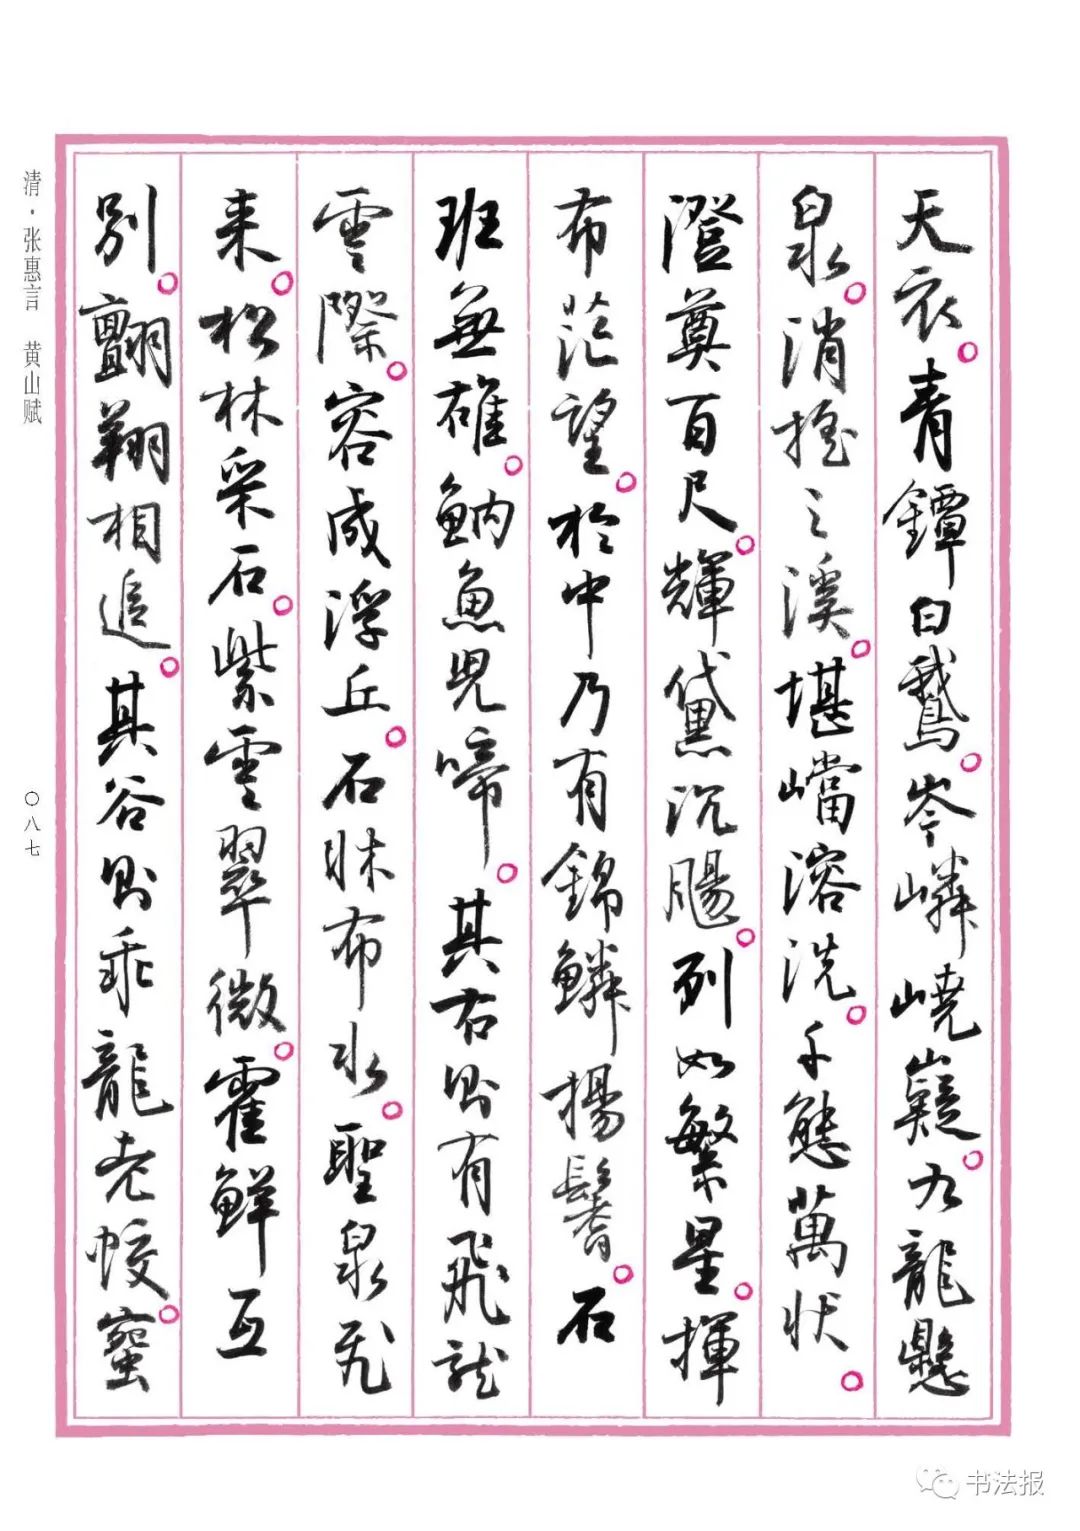 天衣。青鐔白鵝。岑嶙嶢嶷。九龍懸
泉。消搖之溪。堪㟅溶洗。千態萬狀。
澄奠百尺。輝黛沉腸。列如繁星。揮
布茫望。於中乃有錦鱗揚鬐。石
班無雄。魶魚兒啼。其右則有飛龍
雲際。容成浮丘。石牀布水。聖泉飛
来。松林采石。紫雲翠微。霍鮮互
別。翾翔相追。其谷則乖龍老蛟。蠁
清·张惠言 黄山赋
〇八七
书法报